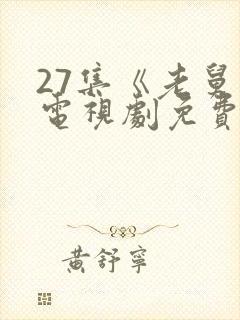 27集《老舅
電視劇免費
黃舒寧